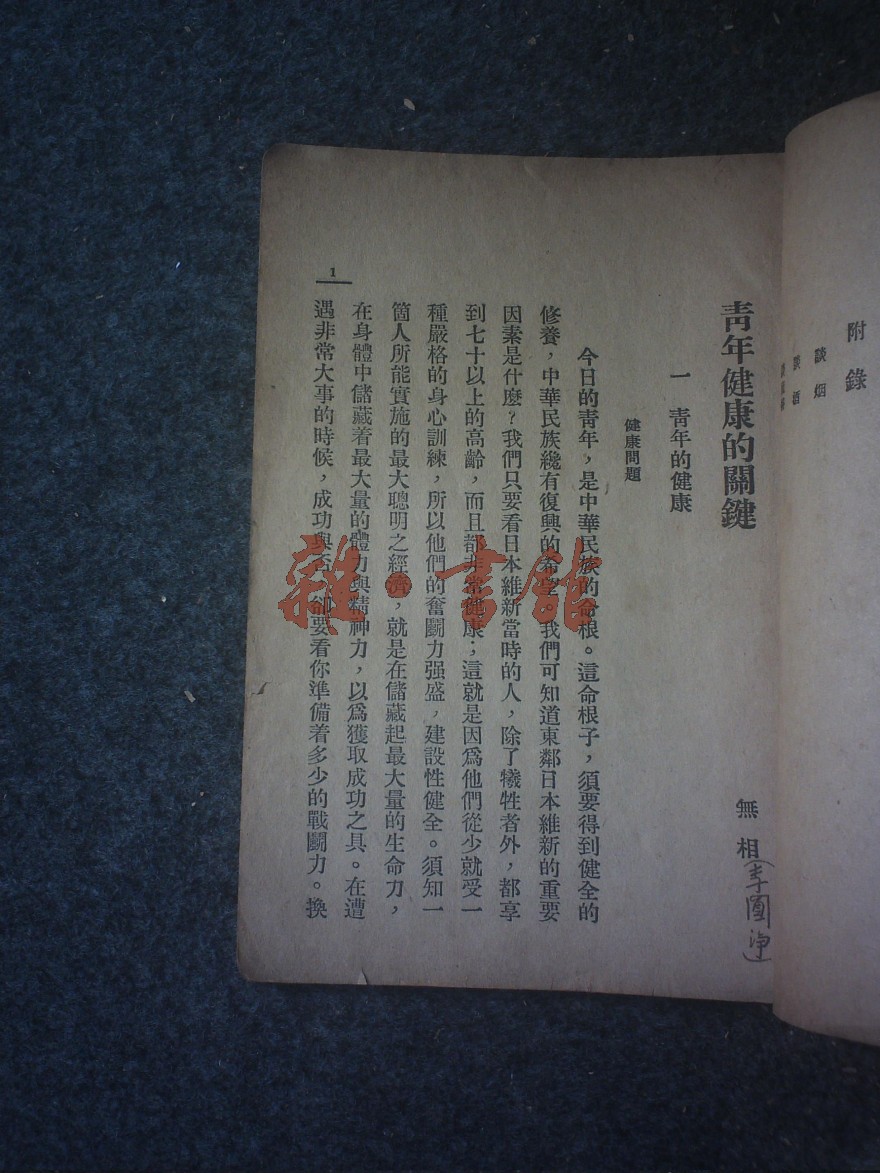 附錄
談烟
談酒
青年健康的關鍵
無相(李圓淨)
一 青年的健康
健康問題
今日的青年，是中華民族的命根。這命根子，須要得到健全的
修養，中華民族纔有復興的希望。我們可知道東鄰日本維新的重要
因素是什麼？我們只要看日本維新當時的人，除了犧牲者外，都享
到七十以上的高齡，而且都非常健康；這就是因爲他們從少就受一
種嚴格的身心訓練，所以他們的奮鬭力强盛，建設性健全。須知一
箇人所能實施的最大聰明之經濟，就是在儲藏起最大量的生命力，
在身體中儲藏着最大量的體力與精神力，以爲獲取成功之具。在遭
遇非常大事的時候，成功與否，卻要看你準備着多少的戰鬭力。換
1
雜·書館